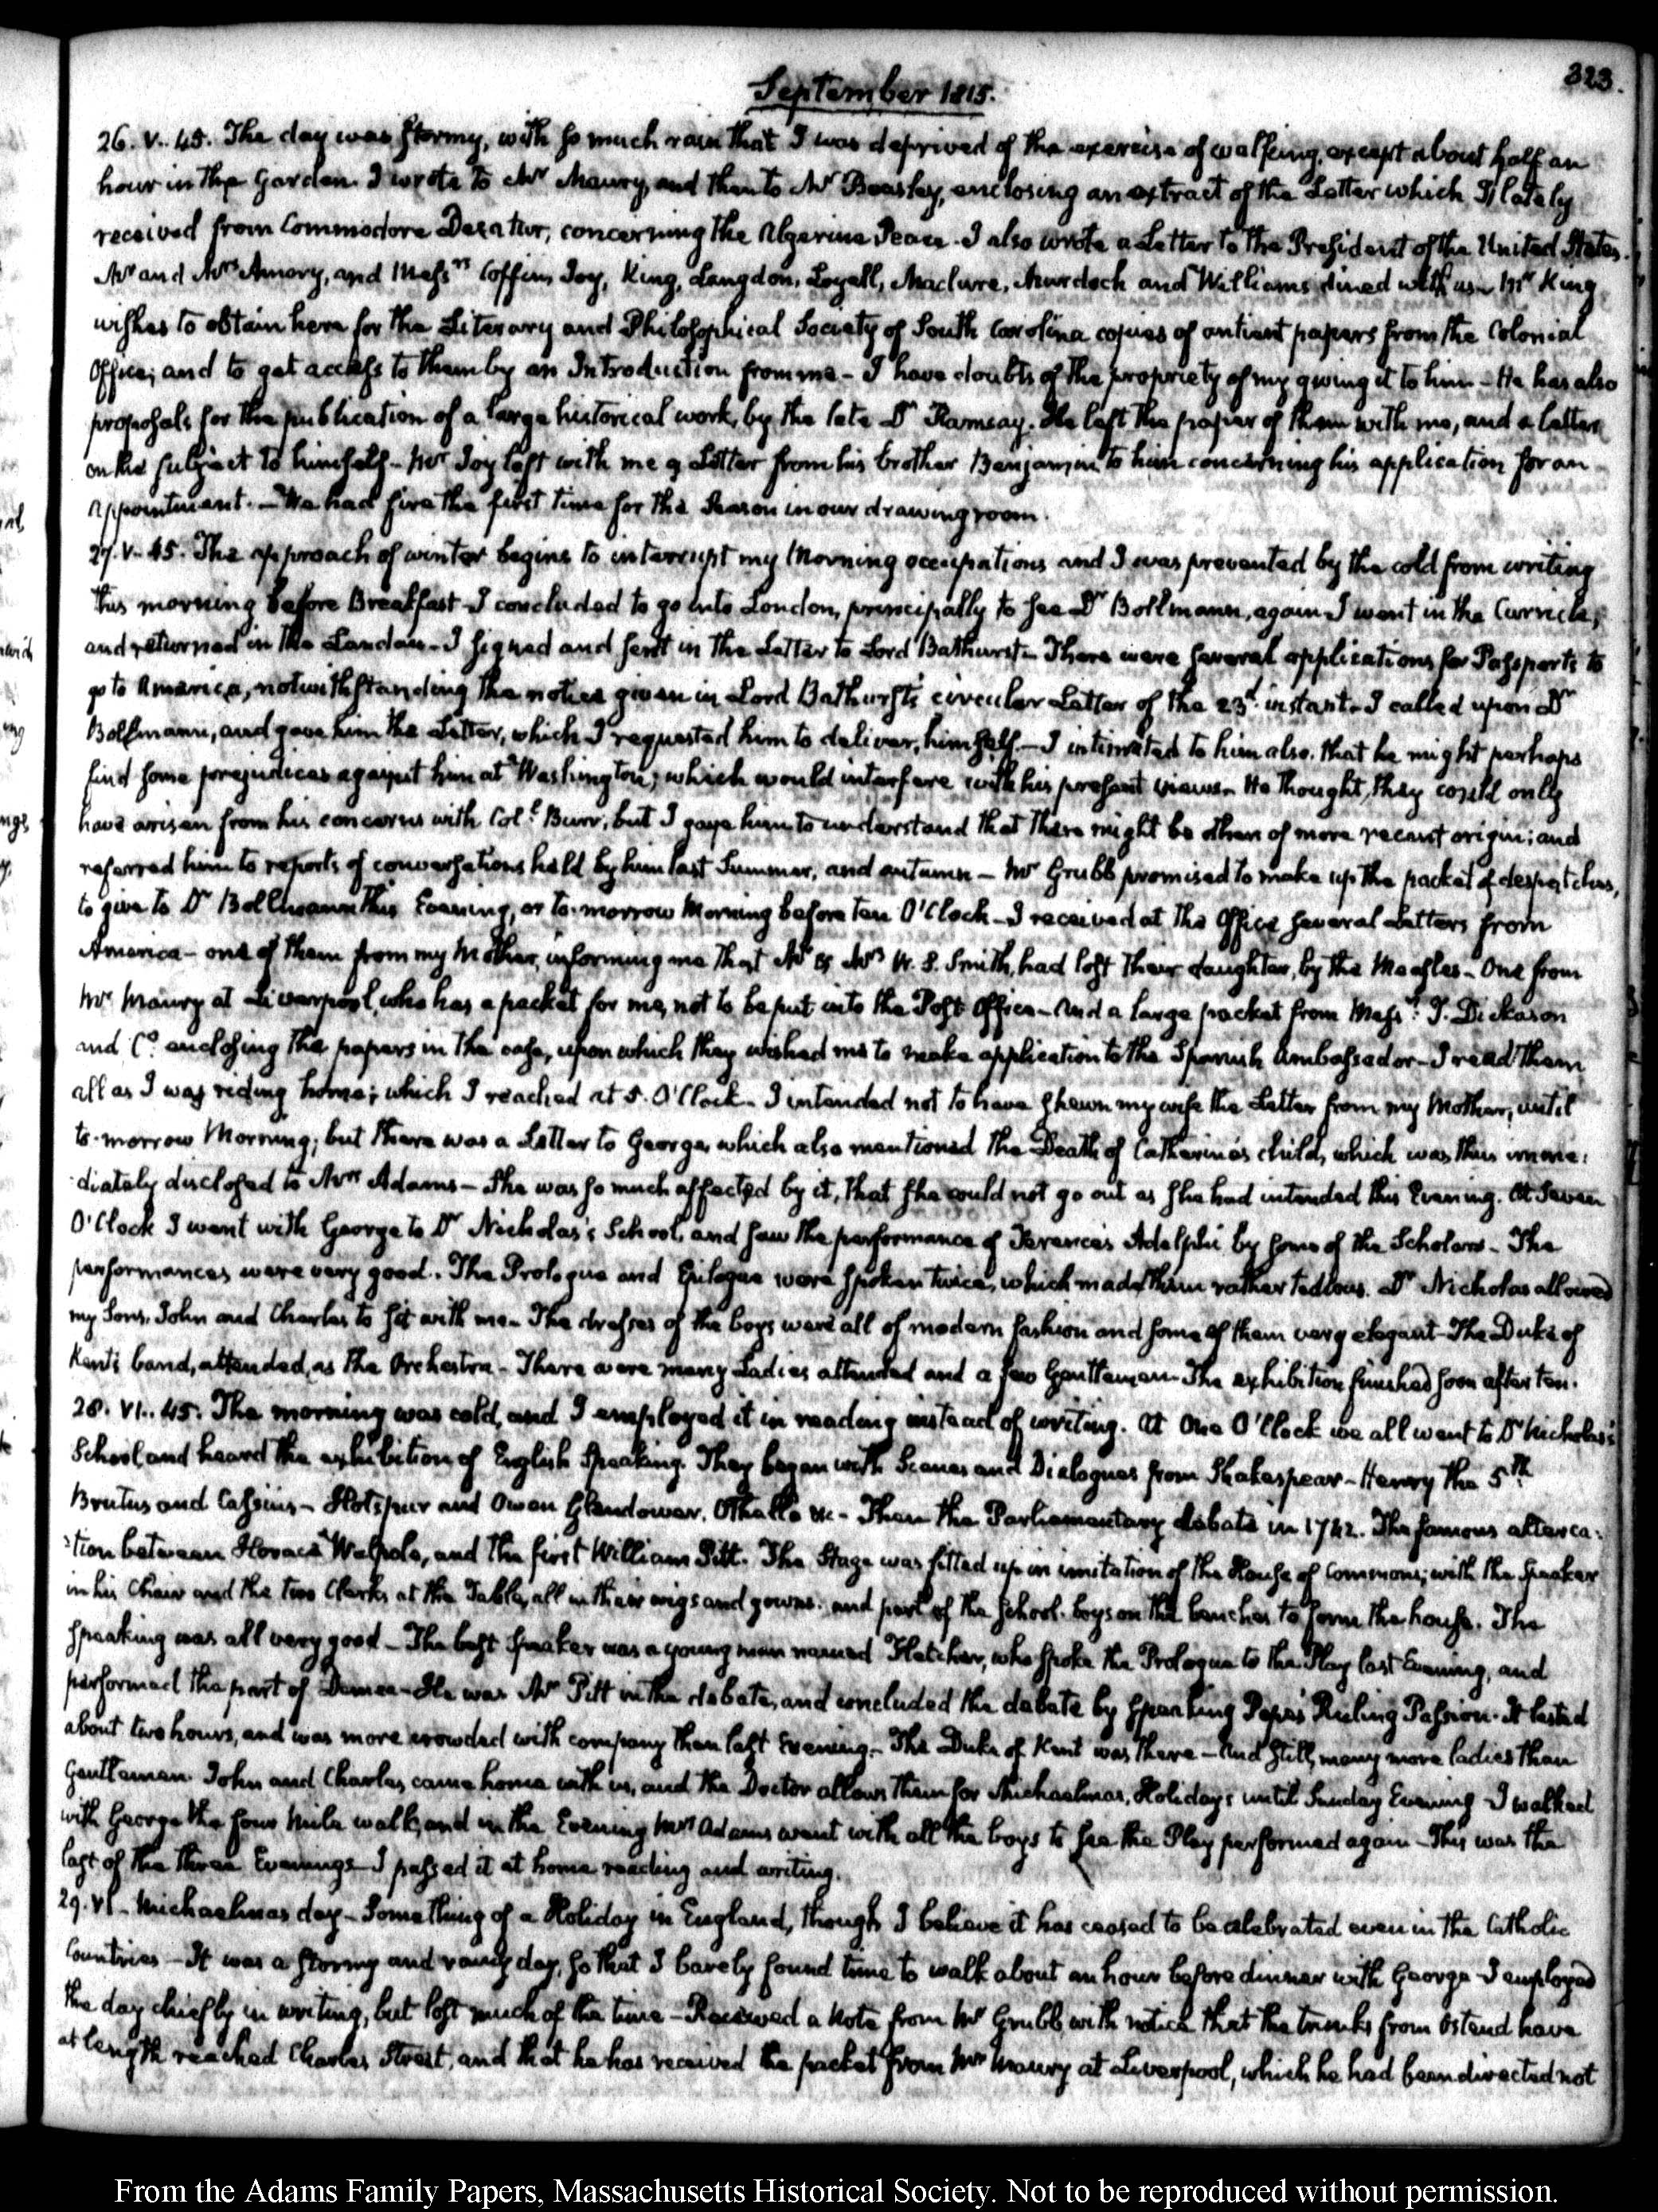 323.
September 1815.
26. V. 45. The day was stormy, with so much rain that I was deprived of the exercise of walking, except about half an
hour in the Garden. I wrote to Mr Maury, and then to Mr Beasley, enclosing an extract of the Letter which I lately
received from Commodore Decatur, concerning the Algerine Peace. I also wrote a Letter to the President of the United States.
Mr and Mrs Amory, and Messrs Coffin, Joy, King, Langdon, Loyall, Maclure, Murdock and Williams dined with us. Mr King
wishes to obtain here for the Literary and Philosophical Society of South Carolina copies of antient papers from the Colonial
Office; and to get access to them by an Introduction from me - I have doubts of the propriety of my giving it to him - He has also
proposals for the publication of a large historical work, by the late Dr Ramsay. He left the paper of them with me, and a letter
on the subject to himself - Mr Joy left with me a Letter from his brother Benjamin to him concerning his application for an
appointment. - We had fire the first time for the Season in our drawing room.
27. V. 45. The approach of winter begins to interrupt my Morning occupations and I was prevented by the cold from writing
this morning before Breakfast - I concluded to go into London, principally to see Dr Bollmann, again - I went in the Curricle,
and returned in the Landau - I signed and sent in the Letter to Lord Bathurst - There were several applications for Passports to
go to America, notwithstanding the notice given in Lord Bathurst's circular Letter of the 23d. instant - I called upon Dr
Bollmann, and gave him the Letter, which I requested him to deliver, himself. - I intimated to him also, that he might perhaps
find some prejudices against him at Washington, which would interfere with his present views - He thought, they could only
have arisen from his concerns with Coll. Burr, but I gave him to understand that there might be others of more recent origin; and
referred him to reports of conversations held by him last Summer, and autumn - Mr Grubb promised to make up the packet of despatches,
to give to Dr Bollmann this Evening, or to-morrow Morning before ten O'Clock - I received at the Office several Letters from
America - one of them from my Mother, informing me that Mr & Mrs W. S. Smith, had lost their daughter, by the Measles - One from
Mr Maury at Liverpool, who has a packet for me, not to be put into the Post Office - And a large packet from Messrs: T. Dickason
and Co. enclosing the papers in the case, upon which they wished me to make application to the Spanish Ambassador - I read them
all as I was riding home; which I reached at 5. O'Clock - I intended not to have shewn my wife the Letter from my Mother, until
to-morrow Morning; but there was a Letter to George, which also mentioned the Death of Catherine's child, which was thus imme:
:diately disclosed to Mrs Adams - She was so much affected by it, that she could not go out as she had intended this Evening. At Seven
O'Clock I went with George to Dr Nicholas's School, and saw the performance of Terence's Adelphi by some of the Scholars - The
performances were very good. The Prologue and Epilogue were spoken twice, which made them rather tedious. Dr Nicholas allowed
my Sons, John and Charles to sit with me - The dresses of the boys were all of modern fashion and some of them very elegant - The Duke of
Kent's band, attended, as the Orchestra - There were many Ladies attended and a few Gentlemen - The exhibition finished soon after ten.
28. VI. 45. The morning was cold, and I employed it in reading instead of writing. At One O'Clock we all went to Dr Nicholas's
School, and heard the exhibition of English Speaking. They began with Scenes and Dialogues from Shakespear - Henry the 5th
Brutus and Cassius - Hotspur and Owen Glendower. Othello &c - Then the Parliamentary debate in 1742. The famous alterca:
:tion between Horace Walpole, and the first William Pitt. The Stage was fitted up in imitation of the House of Commons; with the Speaker
in his Chair and the two Clerks at the Table, all in their wigs and gowns: and part of the school-boys on the benches to form the house. The
speaking was all very good - The best speaker was a young man named Fletcher, who spoke the Prologue to the Play last Evening, and
performed the part of Demea - He was Mr Pitt in the debate, and concluded the debate by speaking Pope's Ruling Passion. It lasted
about two hours, and was more crowded with company than last Evening - The Duke of Kent was there - And still, many more ladies than
Gentlemen. John and Charles, came home with us, and the Doctor allows them for Michaelmas, Holidays until Sunday Evening - I walked
with George the four Mile walk, and in the Evening Mrs Adams went with all the boys to see the Play performed again - This was the
last of the three Evenings - I passed it at home reading and writing.
29. VI - Michaelmas day - Something of a Holiday in England, though I believe it has ceased to be celebrated even in the Catholic
Countries - It was a stormy and rainy day, so that I barely found time to walk about an hour before dinner with George - I employed
the day chiefly in writing, but lost much of the time - Received a Note from Mr Grubb with notice that the trunks from Ostend have
at length reached Charles Street, and that he has received the packet from Mr Maury at Liverpool, which he had been directed not
From the Adams Family Papers, Massachusetts Historical Society. Not to be reproduced without permission.